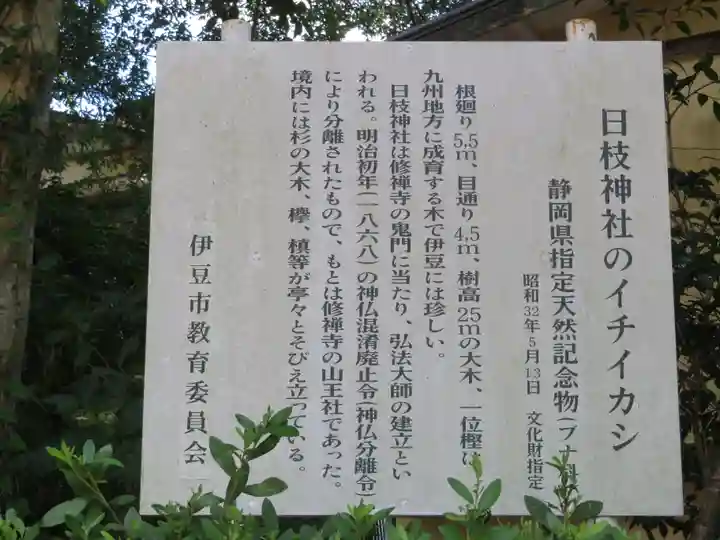 日枝神社のイチイカシ
静岡県指定天然記念物(ブナ科
昭和32年5月13日 文化財指定
根廻り5.5m、目通り4.5m、樹高25mの大木、一位樫は
九州地方に成育する木で伊豆には珍しい。
日枝神社は修禅寺の鬼門に当たり、弘法大師の建立とい
われる。明治初年(一八六八)の神仏混淆廃止令(神仏分離令)
により分離されたもので、もとは修禅寺の山王社であった。
境内には杉の大木、欅、槙等が亭々とそびえ立っている。
伊豆市教育委員会